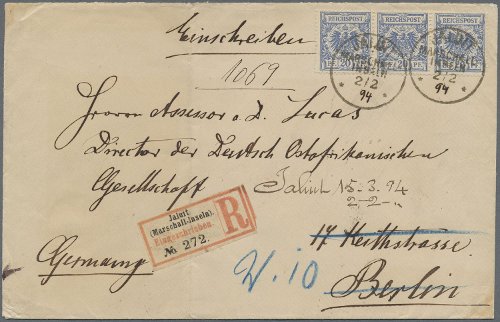 Einschreiben
REICHSPOST REICHSPOST REICHSPOST
JALUIT
MARSCHALL-
INSELN
2/2
94
JALUIT
MARSCHALL-
INSELN
2/2
94
1069
Herrn Assessor a. D. Lucas
Director der Deutsch Ostafrikanischen
Gesellschaft
Jaluit 15.3.94
2-2-
Jaluit
(Marschall-Inseln).
Eingeschrieben.
№ 272.
R
17 Keithstrasse
Germany
V. 10
Berlin